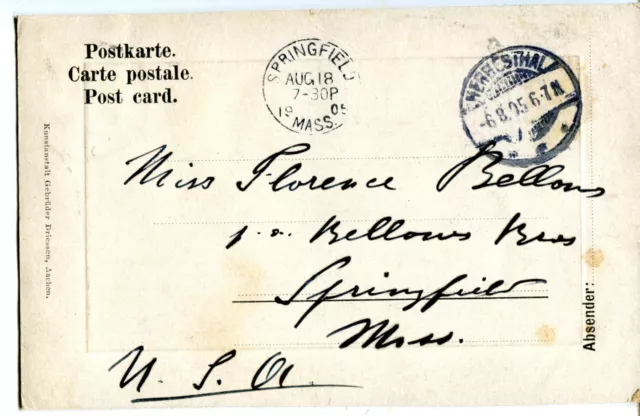 Postkarte.
Carte postale.
Post card.
SPRINGFIELD
AUG 18
7-30P
19 05
MASS.
HERBESTHAL
-6.8.05.6-7.N
Miss Florence Bellows
Bellows Bros
Springfield
Mass.
U. S. A.
Kunstanstalt Gebrüder Driessen, Aachen.
Absender: